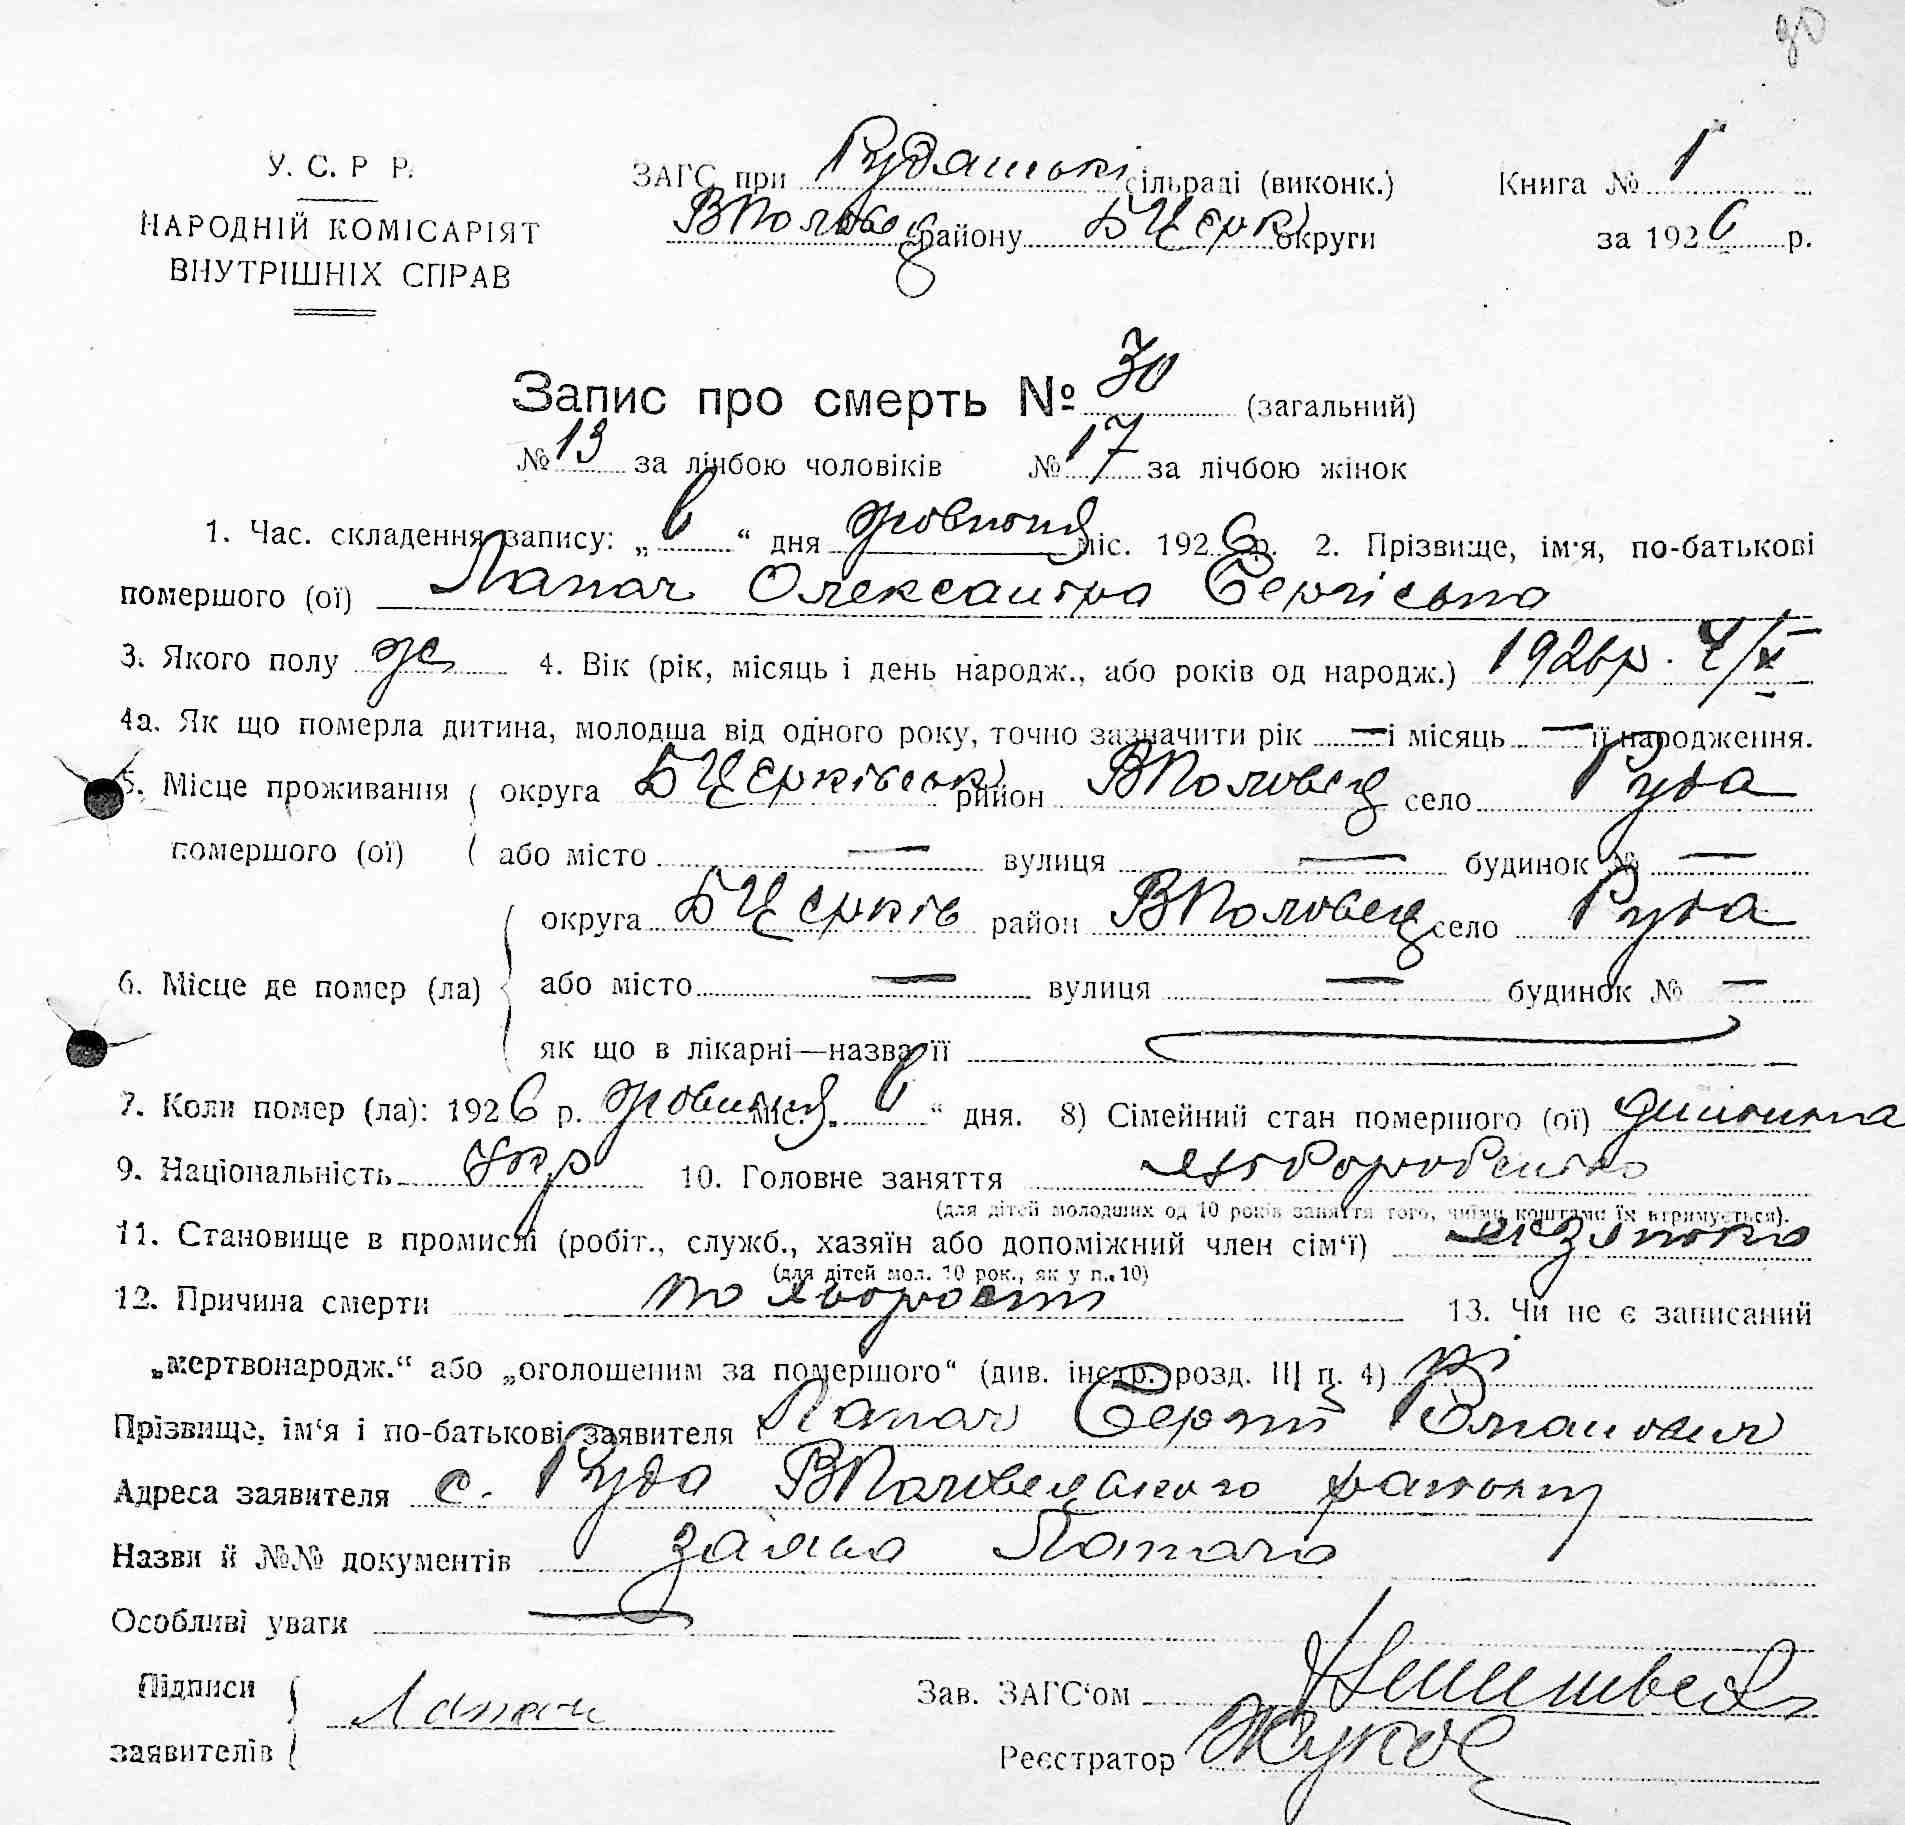 У. С. Р Р.
НАРОДНІЙ КОМІСАРІЯТ
ВНУТРІШНІХ СПРАВ
ЗАГС при Рудянські сільраді (виконк.) Книга № 1
ВПоловец району БЦерк округи за 1926 р.
Запис про смерть № 30 (загальний)
№ 13 за лічбою чоловіків № 17 за лічбою жінок
1. Час. складення запису: „ 6 “ дня жовтня міс. 1926 р. 2. Прізвище, ім'я, по-батькові
помершого (ої) Лапач Олександра Сергієвна
3. Якого полу ж 4. Вік (рік, місяць і день народж., або років од народж.) 1926р. 4/X
4а. Як що померла дитина, молодша від одного року, точно зазначити рік — і місяць — її народження.
5. Місце проживання округа БЦерківськ район ВПоловец село Руда
помершого (ої) або місто — вулиця — будинок № —
округа БЦерків район ВПоловец село Руда
6. Місце де помер (ла) або місто — вулиця — будинок № —
як що в лікарні—назва її
7. Коли помер (ла): 1926 р. жовтня міс. „ 6 “ дня. 8) Сімейний стан помершого (ої) дитина
9. Національність Укр 10. Головне заняття хлібороб
(для дітей молодших од 10 років заняття того, чиїми коштами їх втримується).
11. Становище в промислі (робіт., служб., хазяїн або допоміжний член сім‘ї)
(для дітей мол. 10 рок., як у п. 10)
12. Причина смерти по хворости 13. Чи не є записаний
„мертвонародж.“ або „оголошеним за помершого“ (див. інстр. розд. III п. 4) ні
Прізвище, ім‘я і по-батькові заявителя Лапач Сергій Романович
Адреса заявителя с. Руда ВПоловецького району
Назви й №№ документів заява Лапача
Особливі уваги —
Підписи Лапач Зав. ЗАГС‘ом
заявителів Реєстратор Жук